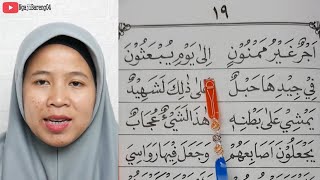 NgajiBareng04
١٩
اَجْرٌ غَيْرُ مَمْنُوْنٍ إِلَى يَوْمِ يُبْعَثُوْنَ
فِيْ جِيْدِهَا حَبْلٌ عَلَى ذٰلِكَ لَشَهِيْدٌ
يَمْشِيْ عَلَى بَطْنِهٖ هٰذَا لَشَيْءٌ عُجَابٌ
يَجْعَلُوْنَ اَصَابِعَهُمْ وَجَعَلَ فِيْهَا رَوَاسِيَ